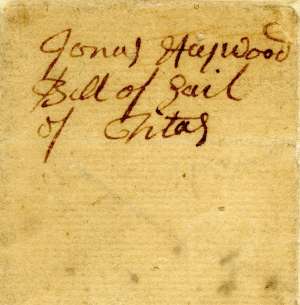 Jonas Haywood
Bill of Sail
of